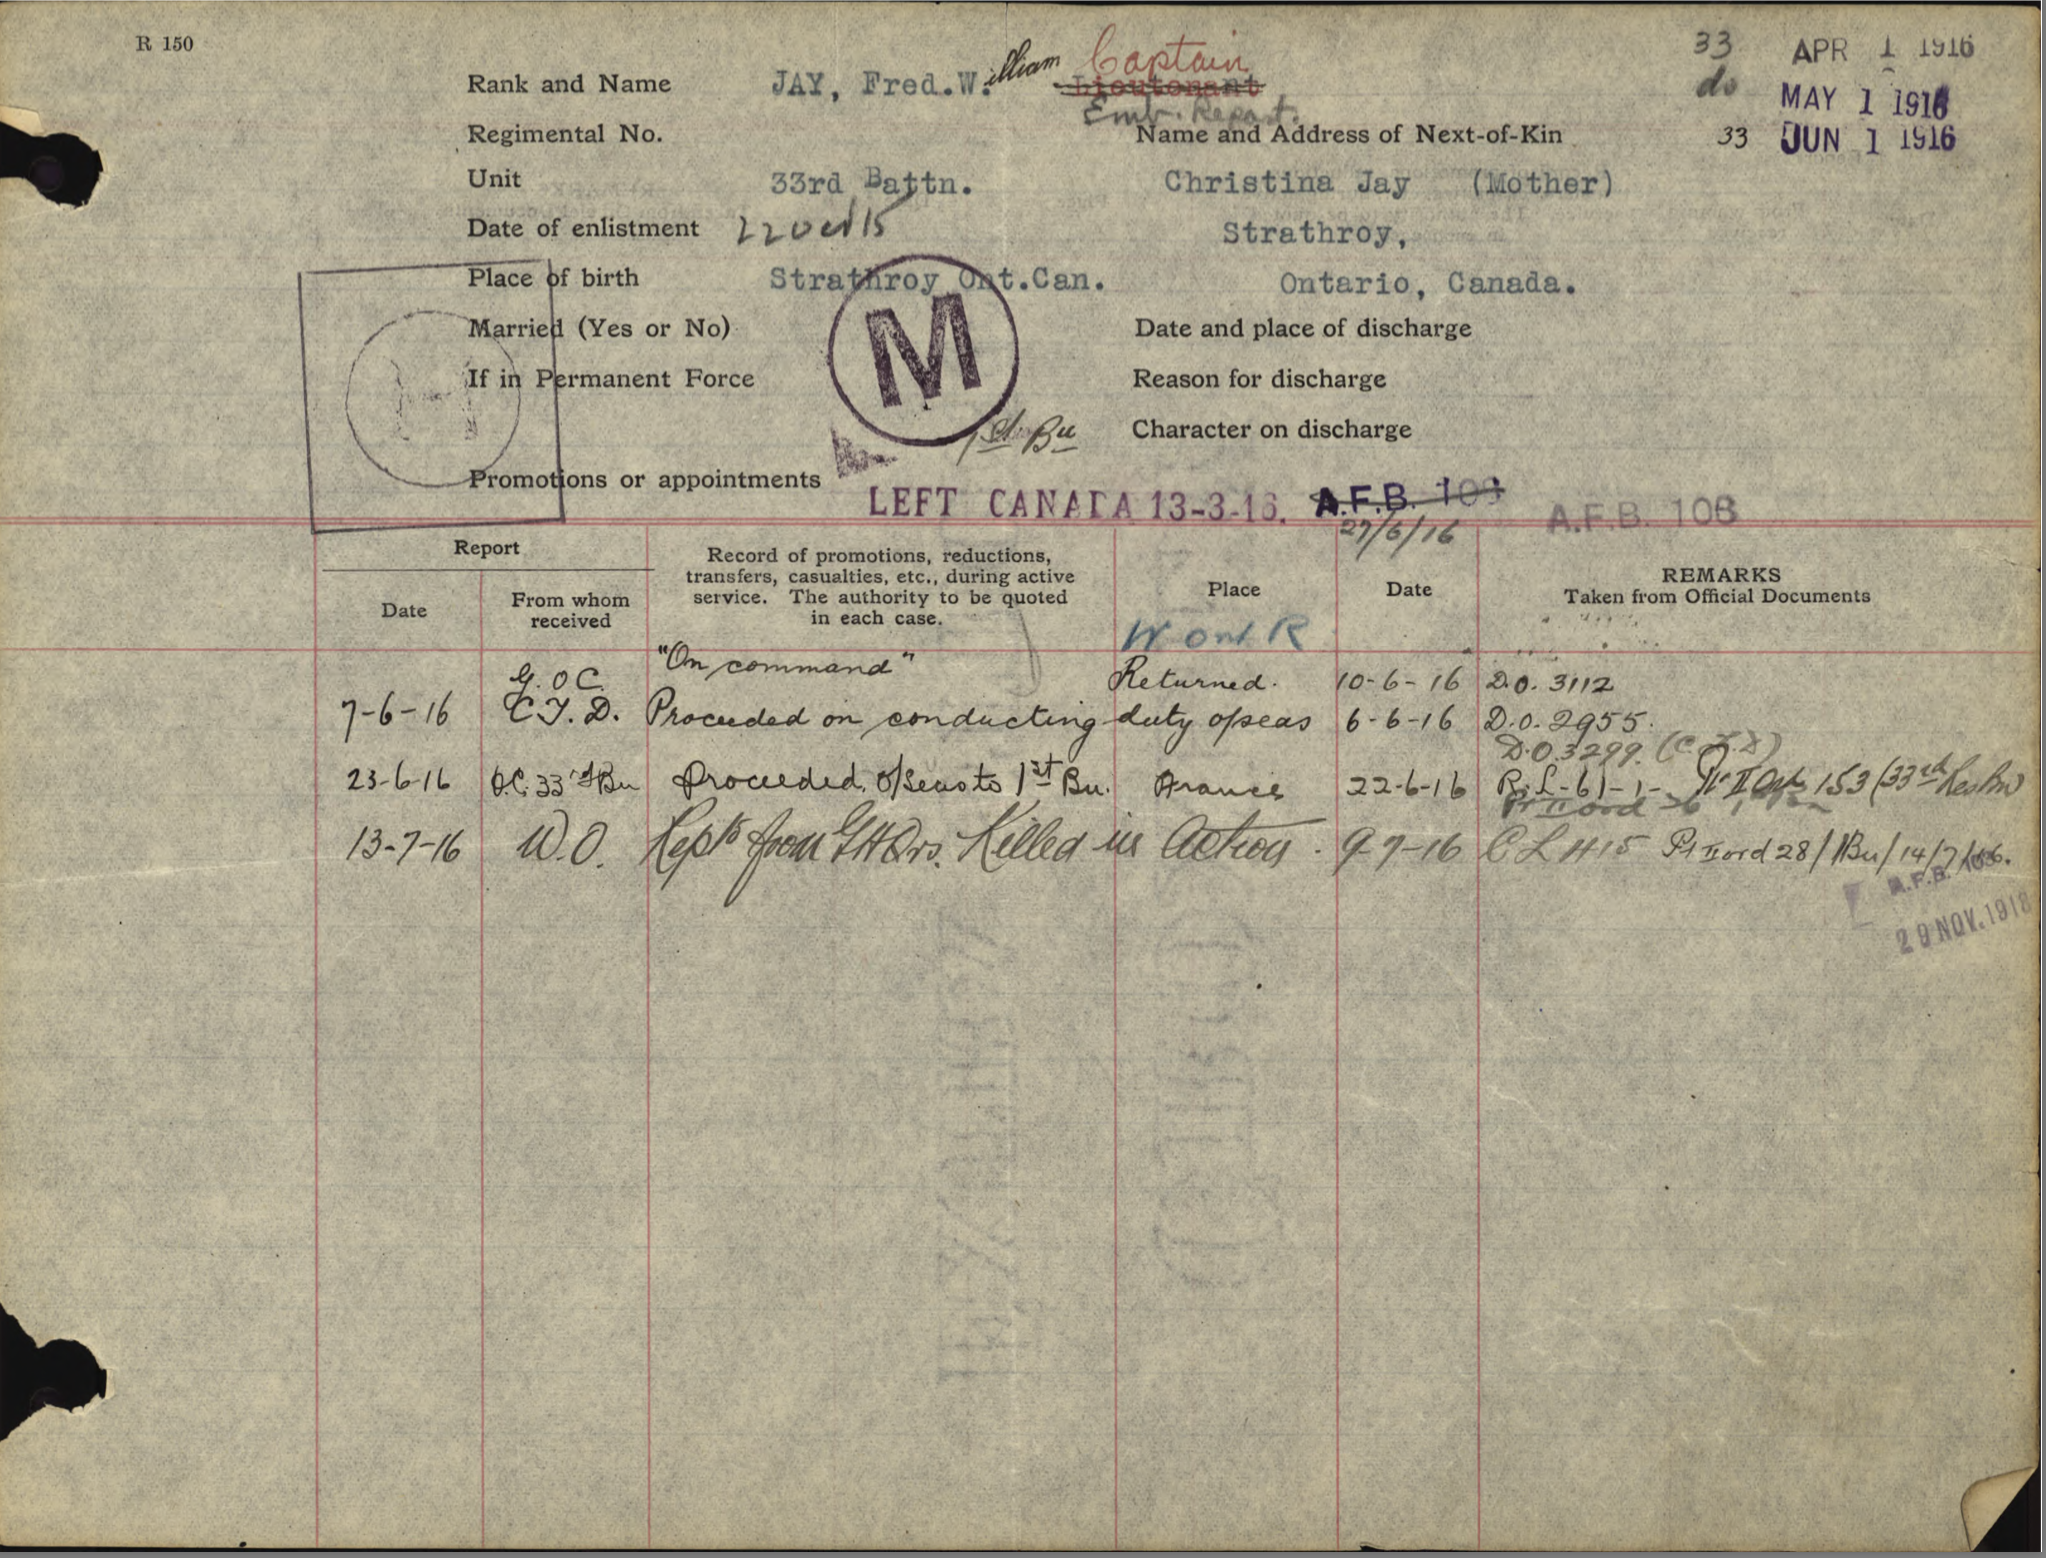 R 150
33 APR 1 1916
do MAY 1 1916
33 JUN 1 1916
Rank and Name JAY, Fred.W.illiam Captain
Lieutenant
Emb. Report.
Regimental No.
Name and Address of Next-of-Kin
Unit 33rd Battn.
Christina Jay (Mother)
Date of enlistment 22 Oct 15
Strathroy,
Place of birth Strathroy Ont.Can.
Ontario, Canada.
Married (Yes or No)
Date and place of discharge
M
If in Permanent Force
Reason for discharge
1st Bn
Character on discharge
Promotions or appointments
LEFT CANADA 13-3-16. A.F.B. 103 A.F.B. 103
27/6/16
Report
Date
From whom
received
Record of promotions, reductions,
transfers, casualties, etc., during active
service. The authority to be quoted
in each case.
Place
W Ont R
Date
REMARKS
Taken from Official Documents
G.O.C. "On command" Returned. 10-6-16 D.O. 3112
7-6-16 C.T.D. Proceeded on conducting duty o/seas 6-6-16 D.O. 2955.
D.O. 3299. (C.T.D)
23-6-16 O.C. 33rd Bn Proceeded o/seas to 1st Bn. France 22-6-16 R.L-61-1- Pt II Ord 153 (33rd Res Bn)
13-7-16 W.O. Rept from GHQrs. Killed in Action. 9-7-16 C L H15 Pt II ord 28/1Bn/14/7/16.
A.F.B. 103.
29 NOV. 1918